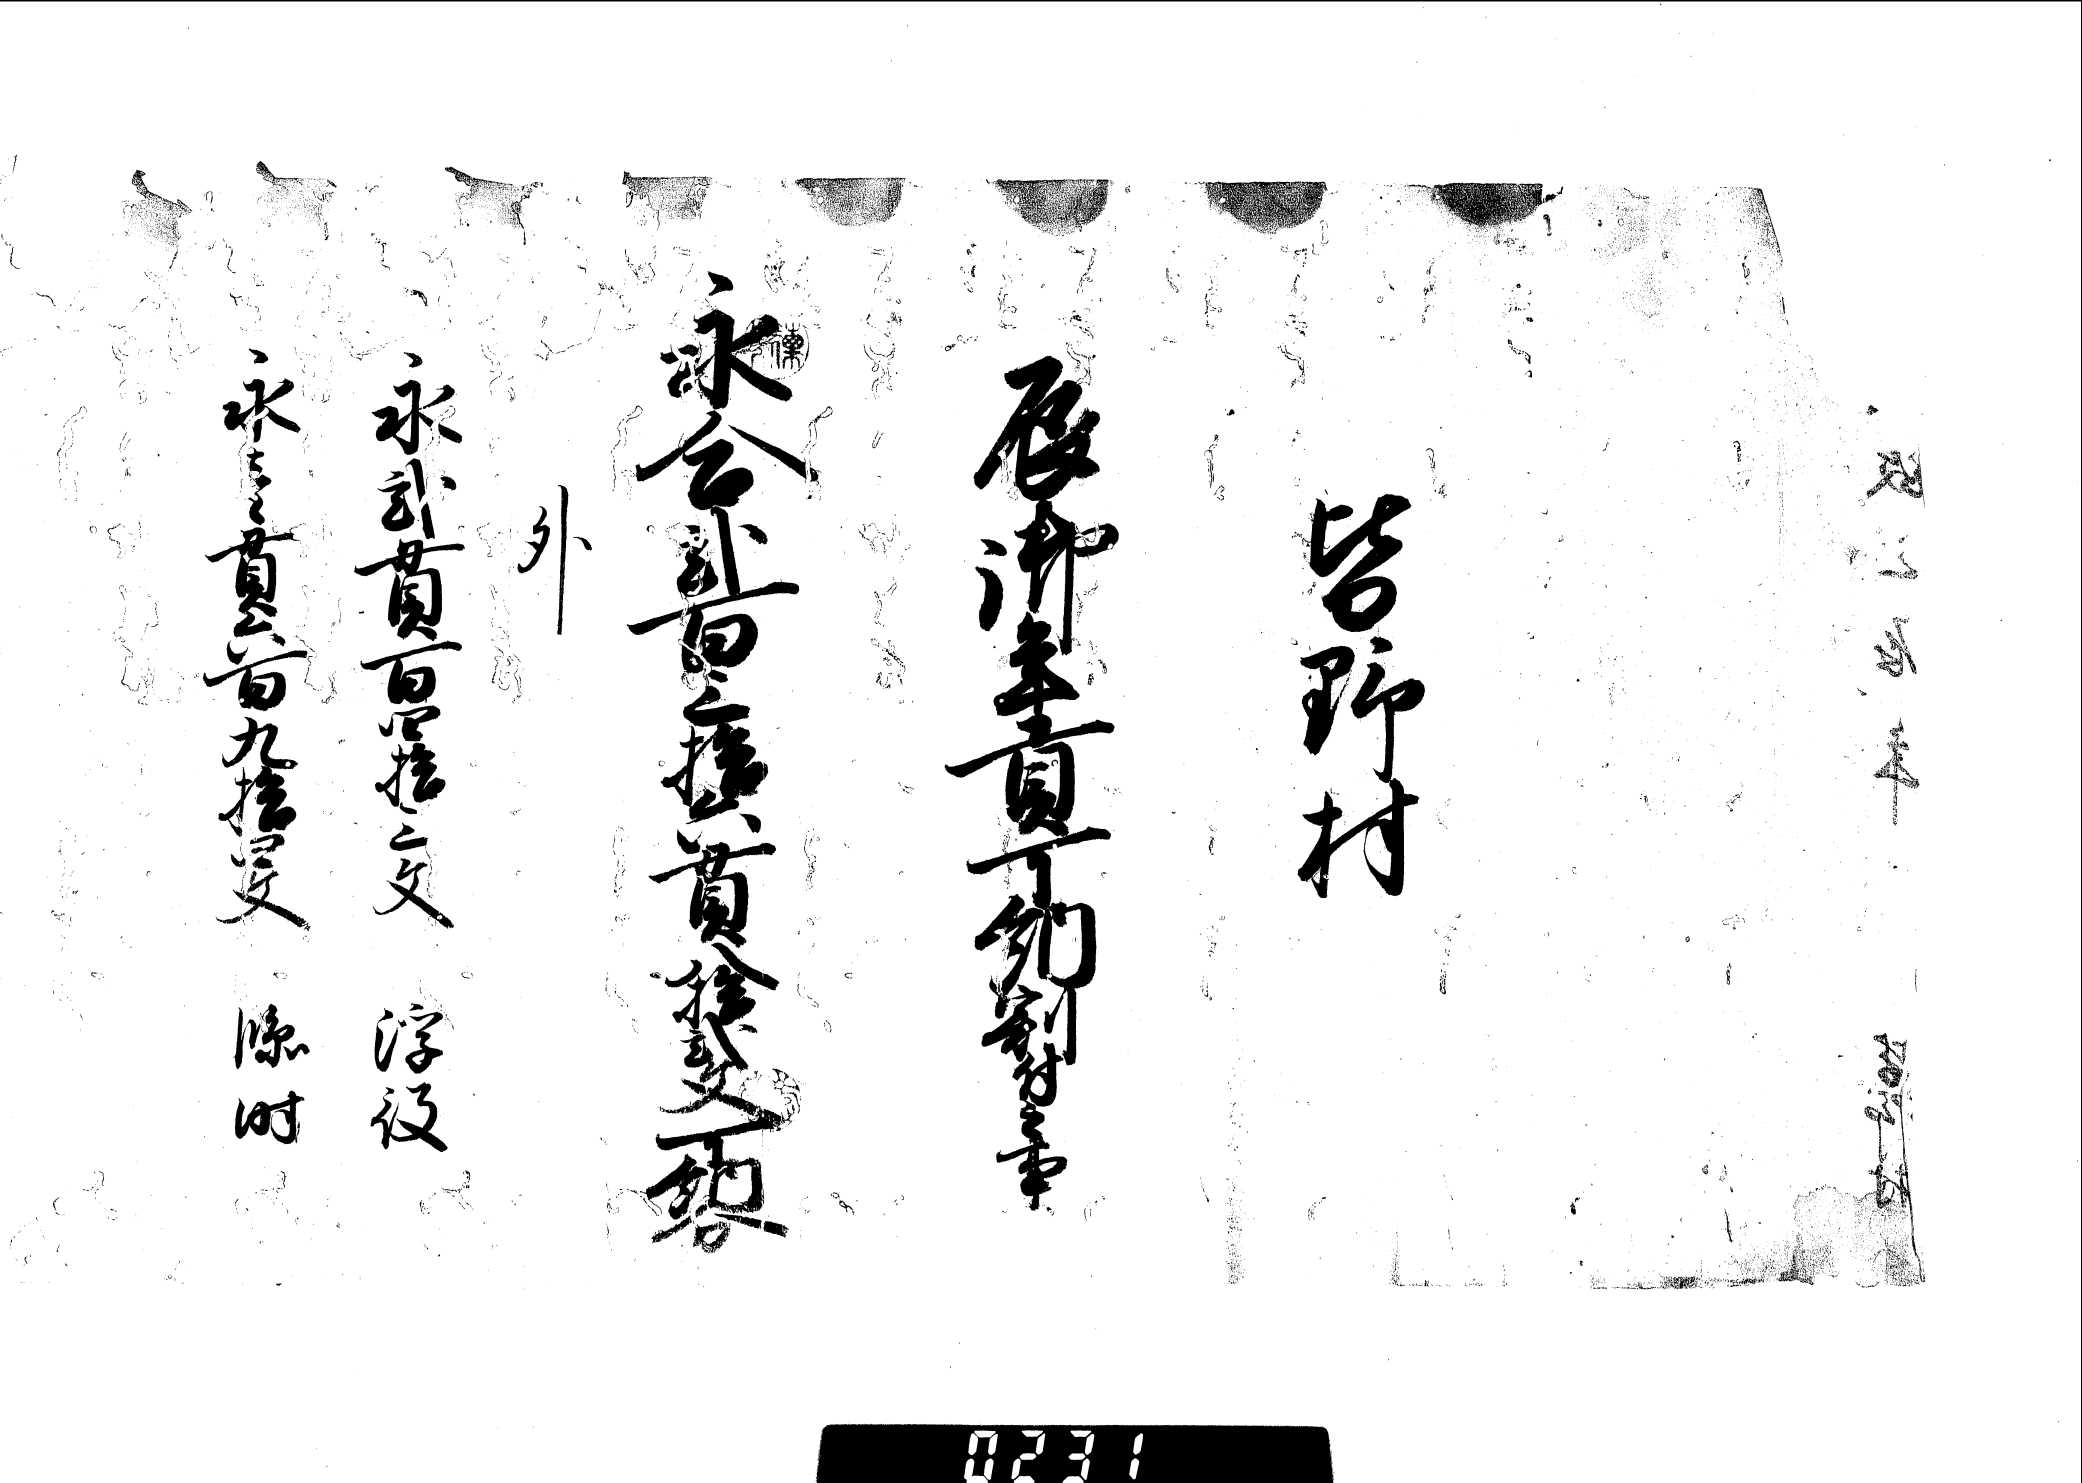 皆野村
辰御年貢可納割付之事
永合弐百三拾六貫八拾弐文可納分
外
永弐貫百四拾三文 浮役
永壱貫六百九拾四文 臨時
0231